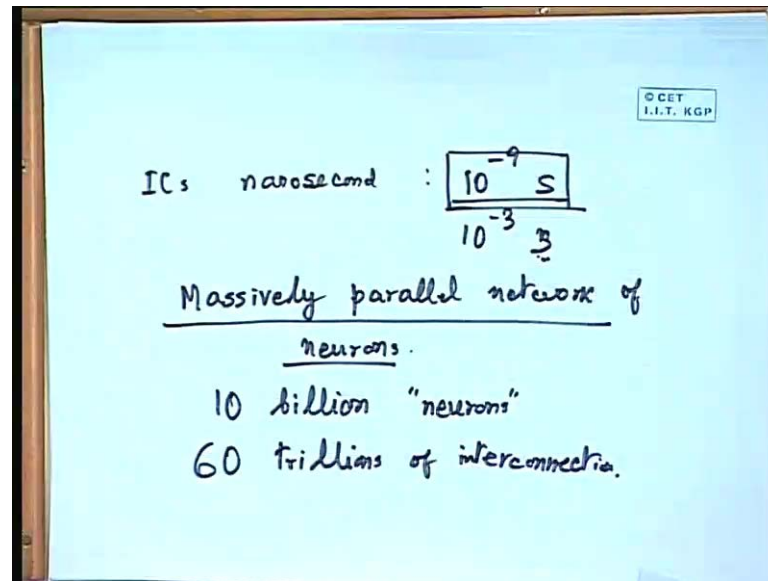 © CET
I.I.T. KGP
ICs nanosecond : 10⁻⁹ s
10⁻³ s
Massively parallel network of
neurons.
10 billion "neurons"
60 trillions of interconnection.